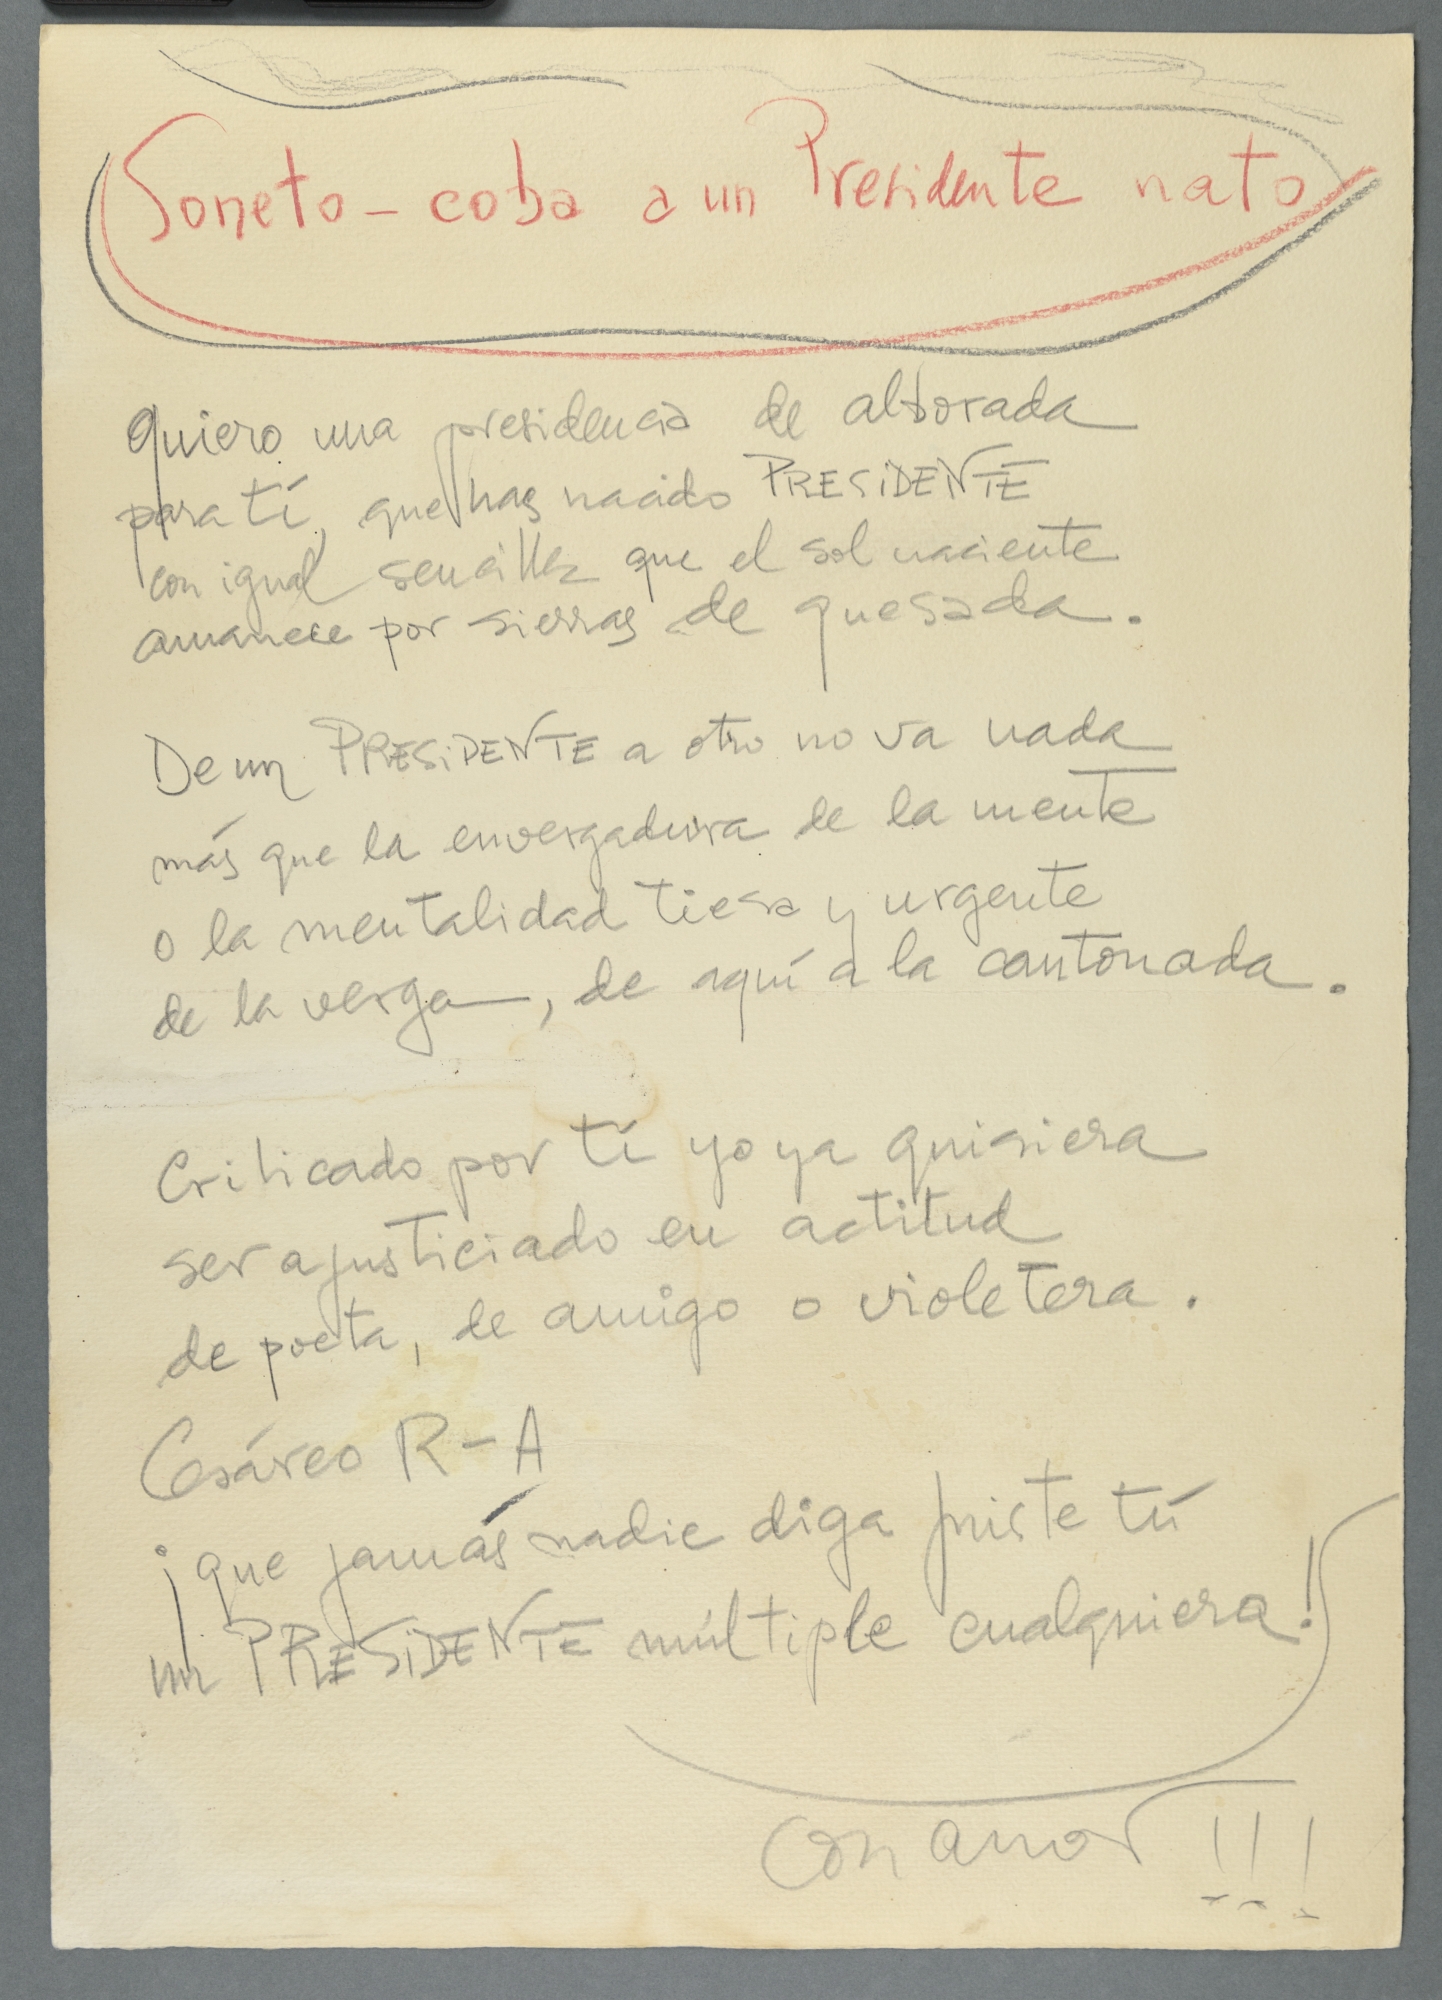 Soneto - coba a un Presidente nato
Quiero una presidencia de alborada
para tí, que has nacido PRESiDENTE
con igual sencillez que el sol naciente
amanece por sierras de quesada.
De un PRESiDENTE a otro no va nada
más que la envergadura de la mente
o la mentalidad tiesa y urgente
de la verga, de aquí a la cantonada.
Criticado por tí yo ya quisiera
ser ajusticiado en actitud
de poeta, de amigo o violetera.
Cesáreo R-A
¡que jamás nadie diga fuiste tú
un PRESiDENTE múltiple cualquiera!
Con amor !!!